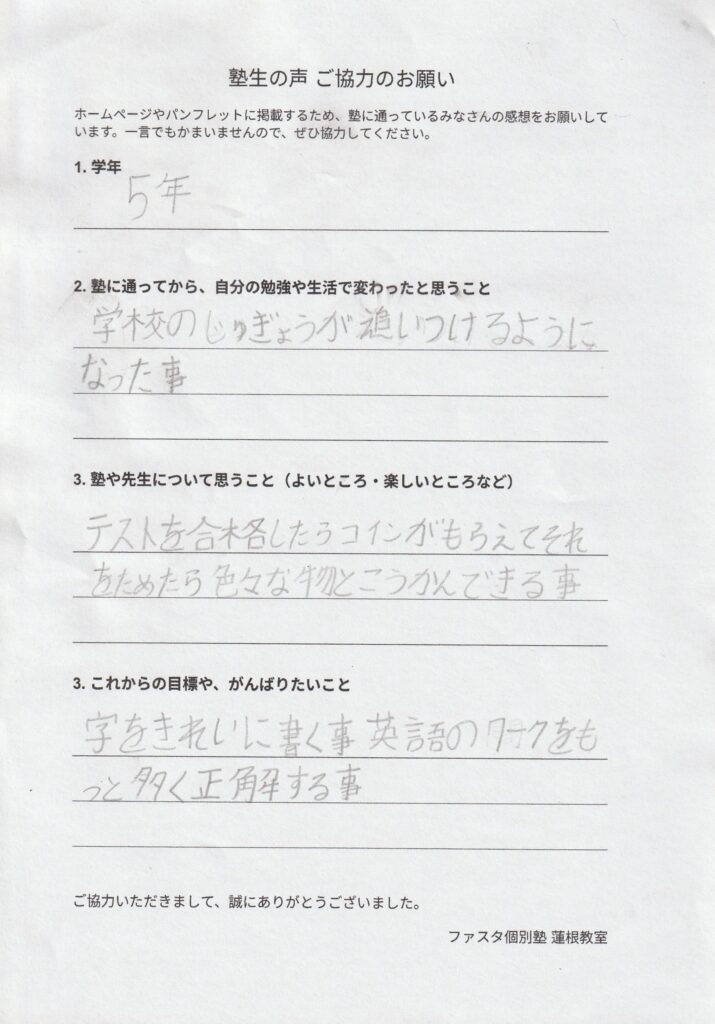 塾生の声 ご協力のお願い
ホームページやパンフレットに掲載するため、塾に通っているみなさんの感想をお願いして
います。一言でもかまいませんので、ぜひ協力してください。
1. 学年
5年
2. 塾に通ってから、自分の勉強や生活で変わったと思うこと
学校のじゅぎょうが追いつけるように
なった事
3. 塾や先生について思うこと（よいところ・楽しいところなど）
テストを合格したらコインがもらえてそれ
をためたら色々な物とこうかんできる事
3. これからの目標や、がんばりたいこと
字をきれいに書く事 英語のワークをも
っと多く正解する事
ご協力いただきまして、誠にありがとうございました。
ファスタ個別塾 蓮根教室